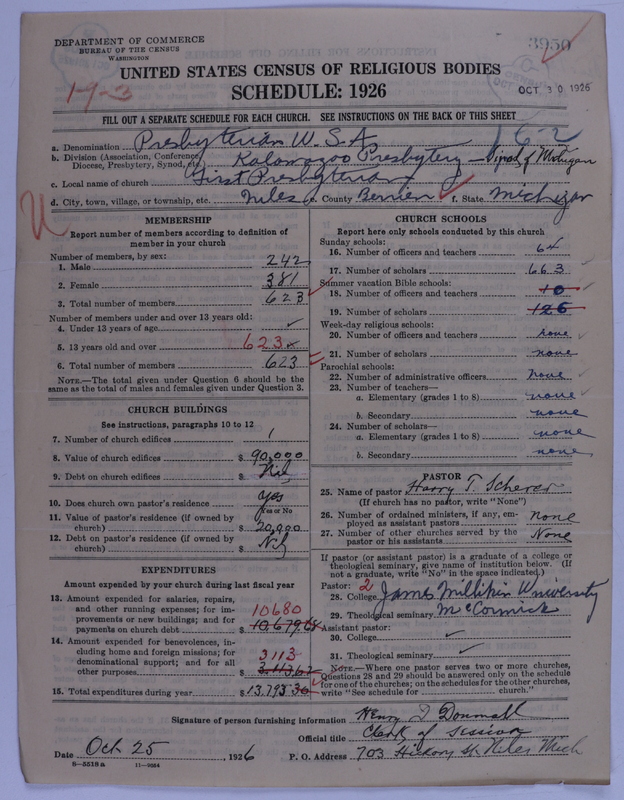 DEPARTMENT OF COMMERCE
BUREAU OF THE CENSUS
WASHINGTON
3950
OCT 30 1926
UNITED STATES CENSUS OF RELIGIOUS BODIES
SCHEDULE: 1926
17-3
FILL OUT A SEPARATE SCHEDULE FOR EACH CHURCH. SEE INSTRUCTIONS ON THE BACK OF THIS SHEET
a. Denomination Presbyterian U.S.A
b. Division (Association, Conference, Diocese, Presbytery, Synod, etc.) Kalamazoo Presbytery - Synod of Michigan
c. Local name of church First Presbyterian
d. City, town, village, or township, etc. Niles e. County Berrien f. State Michigan
MEMBERSHIP
Report number of members according to definition of
member in your church
Number of members, by sex:
1. Male 242
2. Female 381
3. Total number of members 623
Number of members under and over 13 years old:
4. Under 13 years of age
5. 13 years old and over 623
6. Total number of members 623
NOTE.—The total given under Question 6 should be the
same as the total of males and females given under Question 3.
CHURCH BUILDINGS
See instructions, paragraphs 10 to 12
7. Number of church edifices 1
8. Value of church edifices $ 90,000
9. Debt on church edifices $ Nil
10. Does church own pastor's residence? yes
Yes or No
11. Value of pastor's residence (if owned by
church) $ 20,000
12. Debt on pastor's residence (if owned by
church) $ Nil
EXPENDITURES
Amount expended by your church during last fiscal year
13. Amount expended for salaries, repairs,
and other running expenses; for im-
provements or new buildings; and for
payments on church debt $ 10680 10,679.68
14. Amount expended for benevolences, in-
cluding home and foreign missions; for
denominational support; and for all
other purposes $ 3113 3,113.62
15. Total expenditures during year $ 13,793.30
CHURCH SCHOOLS
Report here only schools conducted by this church
Sunday schools:
16. Number of officers and teachers 64
17. Number of scholars 663
Summer vacation Bible schools:
18. Number of officers and teachers 10
19. Number of scholars 126
Week-day religious schools:
20. Number of officers and teachers none
21. Number of scholars none
Parochial schools:
22. Number of administrative officers none
23. Number of teachers—
a. Elementary (grades 1 to 8) none
b. Secondary none
24. Number of scholars—
a. Elementary (grades 1 to 8) none
b. Secondary none
PASTOR
25. Name of pastor Harry T. Scherer
(If church has no pastor, write "None")
26. Number of ordained ministers, if any, em-
ployed as assistant pastors none
27. Number of other churches served by the
pastor or his assistants None
If pastor (or assistant pastor) is a graduate of a college or
theological seminary, give name of institution below. (If
not a graduate, write "No" in the space indicated.)
Pastor: 2
28. College James Millikin University
29. Theological seminary McCormick
Assistant pastor:
30. College
31. Theological seminary
NOTE.—Where one pastor serves two or more churches,
Questions 28 and 29 should be answered only on the schedule
for one of the churches; on the schedules for the other churches,
write "See schedule for church."
Signature of person furnishing information Henry
Official title Clerk of Session
Date Oct 25, 1926 P. O. Address 703 Hickory St. Niles Mich
8—5518a 11—9064